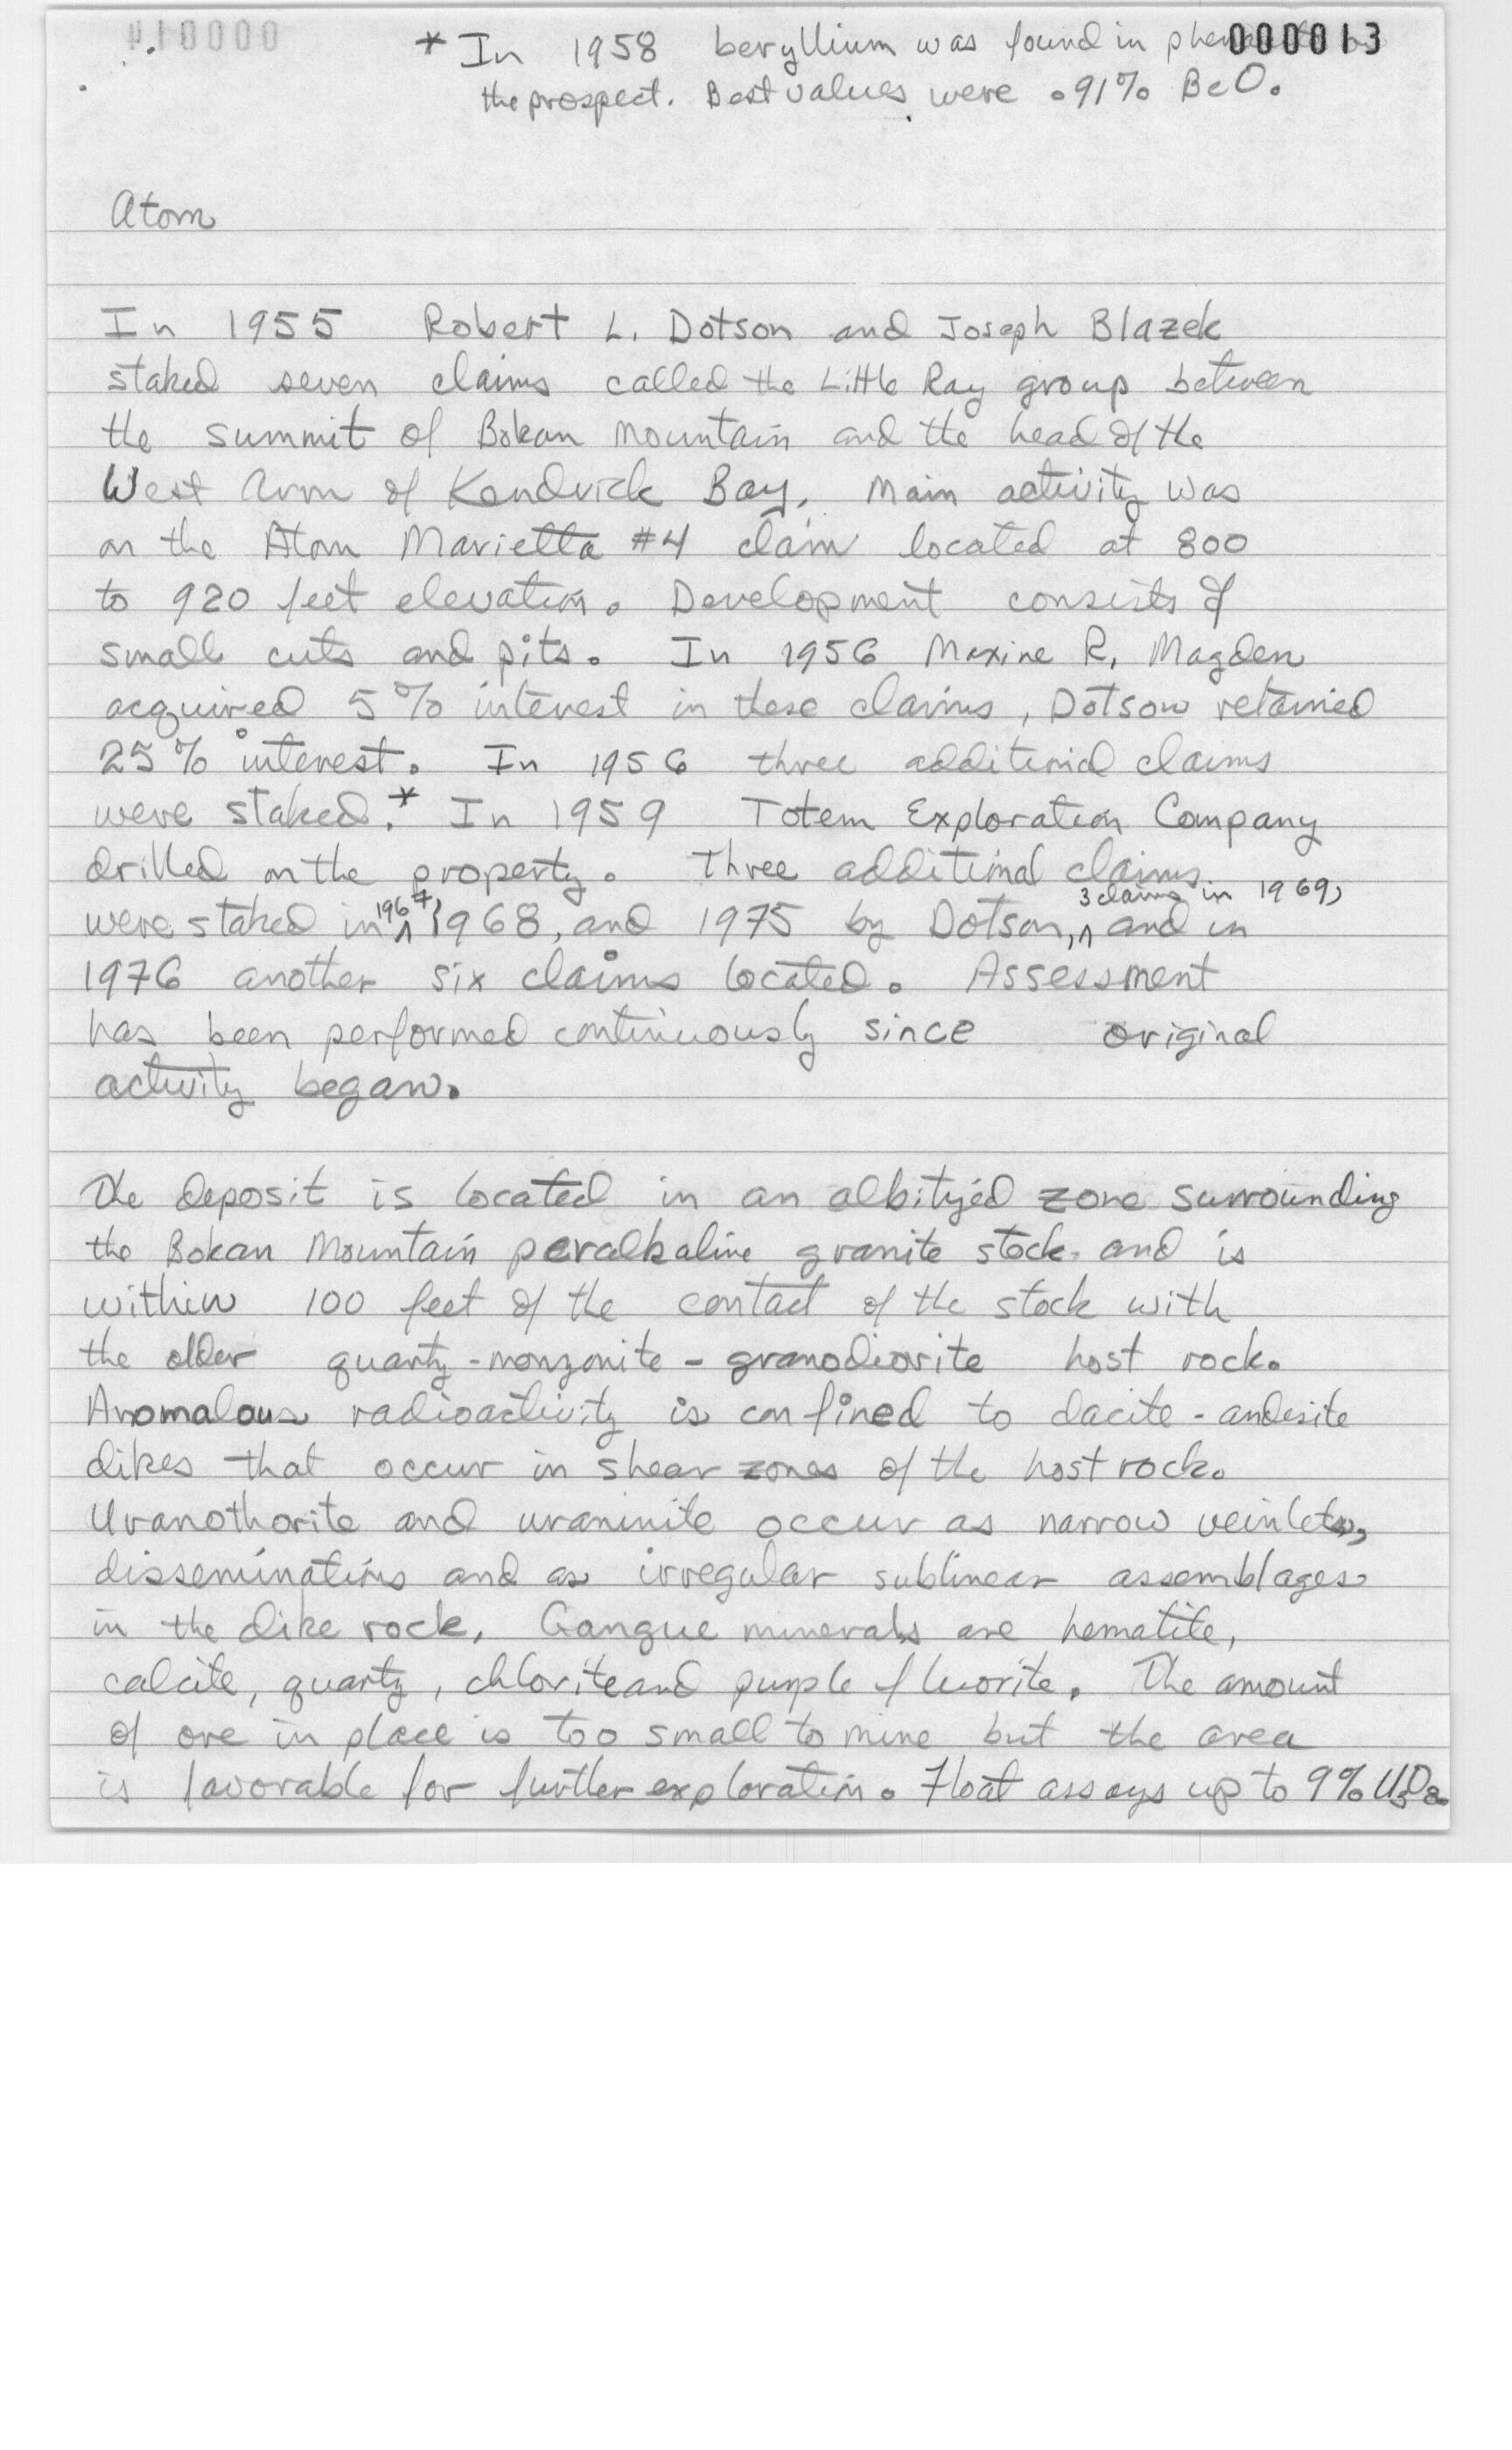 000013
* In 1958 beryllium was found in
the prospect. Best values were .91% BeO.
Atom
In 1955 Robert L. Dotson and Joseph Blazek
staked seven claims called the Little Ray group between
the summit of Bokan Mountain and the head of the
West Arm of Kendrick Bay. Main activity was
on the Atom Marietta #4 claim located at 800
to 920 feet elevation. Development consists of
small cuts and pits. In 1956 Maxine R. Magden
acquired 5% interest in these claims, Dotson retained
25% interest. In 1956 three additional claims
were staked.* In 1959 Totem Exploration Company
drilled on the property. Three additional claims
were staked in 1967, 1968, and 1975 by Dotson, 3 claims in 1969, and in
1976 another six claims located. Assessment
has been performed continuously since original
activity began.
The deposit is located in an albitized zone surrounding
the Bokan Mountain peralkaline granite stock and is
within 100 feet of the contact of the stock with
the older quartz-monzonite-granodiorite host rock.
Anomalous radioactivity is confined to dacite-andesite
dikes that occur in shear zones of the host rock.
Uranothorite and uraninite occur as narrow veinlets,
disseminations and as irregular sublinear assemblages
in the dike rock. Gangue minerals are hematite,
calcite, quartz, chlorite and purple fluorite. The amount
of ore in place is too small to mine but the area
is favorable for further exploration. Float assays up to 9% U3O8.